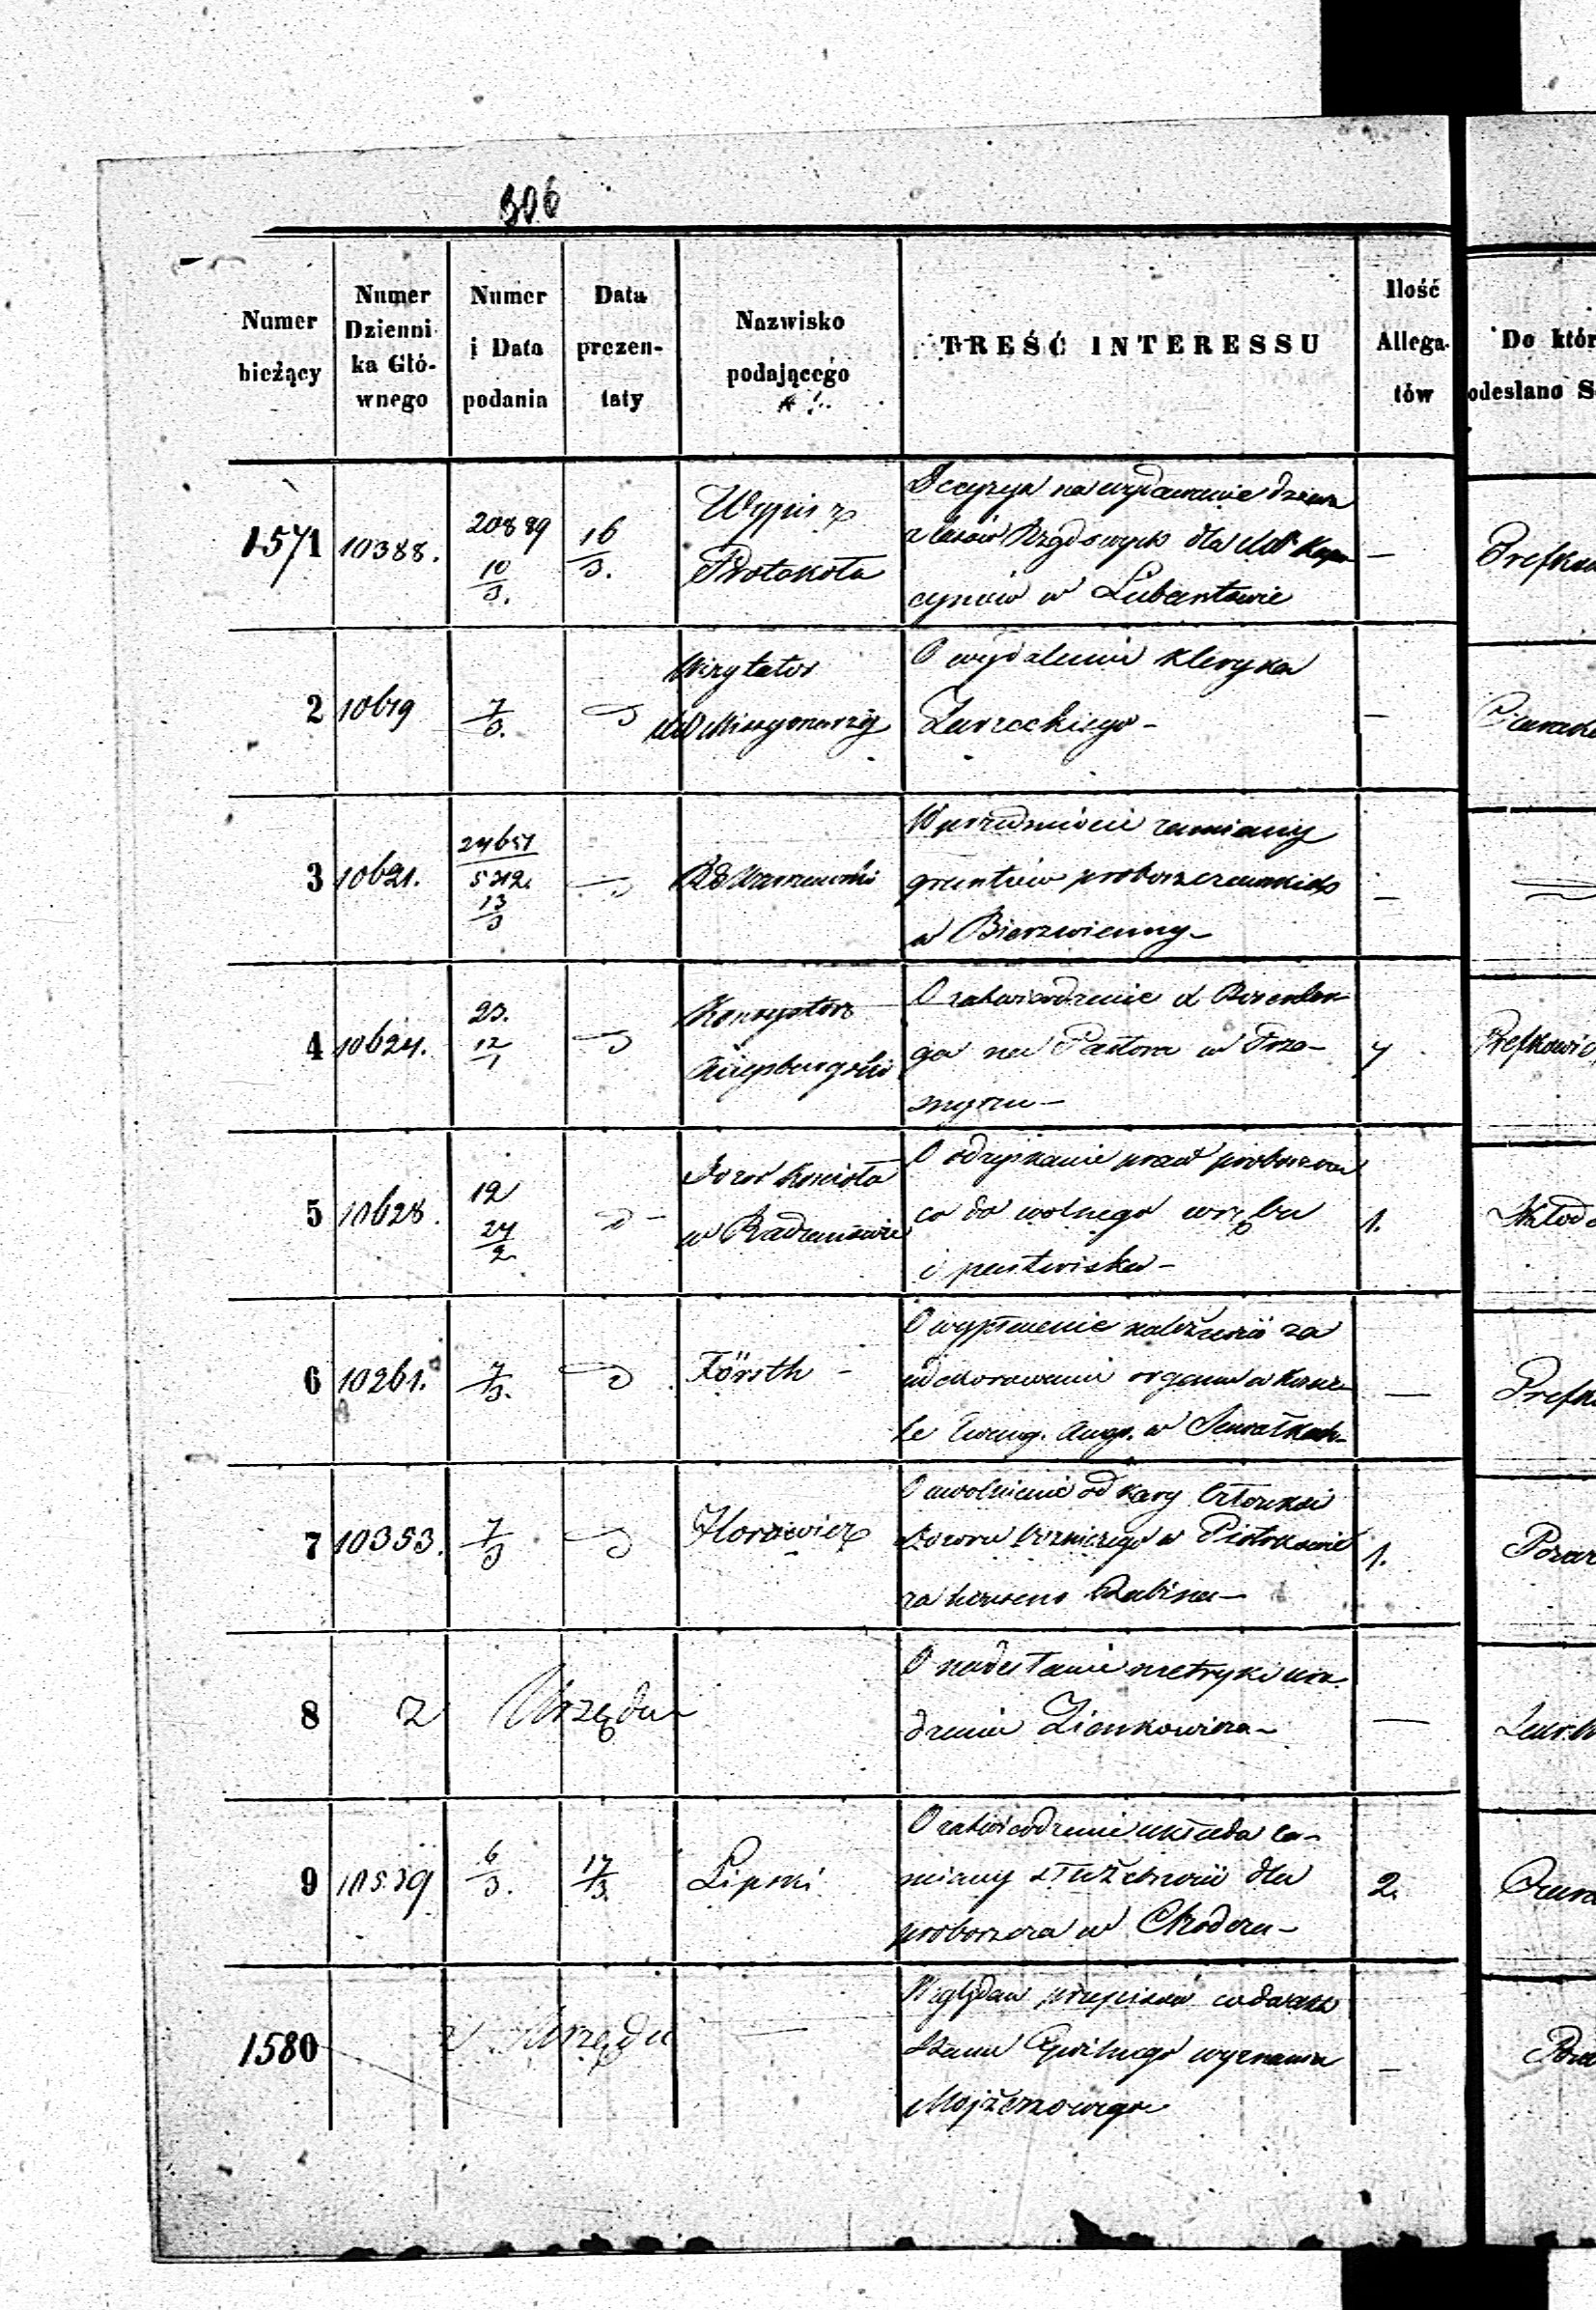 306
Numer bieżący
Numer Dzienni- ka Głó- wnego
Numer i Data podania
Data prezen- taty
Nazwisko podającego
TREŚĆ INTERESSU
Ilość Allega- tów
Do któr
odesłano S
1571 10388. 20889 10/3. 16/3. Wypis z Protokoła
Decyzya na wydawanie drzewa
z lasów Rządowych dla
cynów w Lubartowie
—
2 10619 7/3. Wizytator Missyonarzy
O wydalenie kleryka
Zarzeckiego —
—
3 10621. 24651/5212 13/3
W przedmiocie zamiany
gruntów proboszczowskich
w Bierzwienny —
—
4 10624. 23. 12/1 Konsystorz Augsburgski
O zatwierdzenie
ga na Pastora w Prza-
snyszu —
5 10628. 12 24/2 Dozór Kościoła w
O odzyskanie praw proboszcza
co do wolnego wrębu
i pastwiska —
1.
6 10261. 7/3. Försth —
O wypłacenie należności za
udekorowanie organu w Koście-
le Ewang. Augs. w Suwałkach —
—
7 10353. 7/3 Horowicz
O uwolnienie od kary Członków
Dozoru Bożniczego w Piotrkowie
za Rabina —
1.
8 Z Urzędu
O nadesłanie metryki uro-
dzenia Zienkowicza —
—
9 10539 6/3. 17/3. Lipski
O zatwierdzenie układu za-
miany służebności dla
proboszcza w Chodczu —
2.
1580 z Urzędu —
Względem przepisów co do akt
Stanu Cywilnego wyznania
Mojżeszowego
—